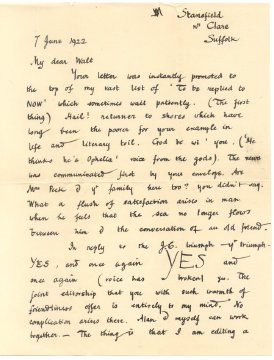 Stansfield
Nr Clare
Suffolk
7 June 1922
My dear Walt
Your letter was instantly promoted to
the top of my vast list of 'To be replied to
NOW' which sometimes wait patiently. (The first
thing) Hail! returner to shores which have
long been the poorer for your example in
life and literary toil. God be wi' you. ('Me
thinks he's Ophelia' voice from the gods). The news
was communicated first by your envelope. Are
Mrs Peck & yr family here too? You didn't say.
What a flush of satisfaction arises in man
when he feels that the sea no longer flows
between him & the conversation of an old friend.
In reply to the J.C. triumph — yr triumph —
YES, and once again YES and
once again (voice has broken) ys. The
joint editorship that you with such warmth of
friendliness offer is entirely to my mind. No
complication arises there. Alan & myself can work
together. — The thing is that I am editing a